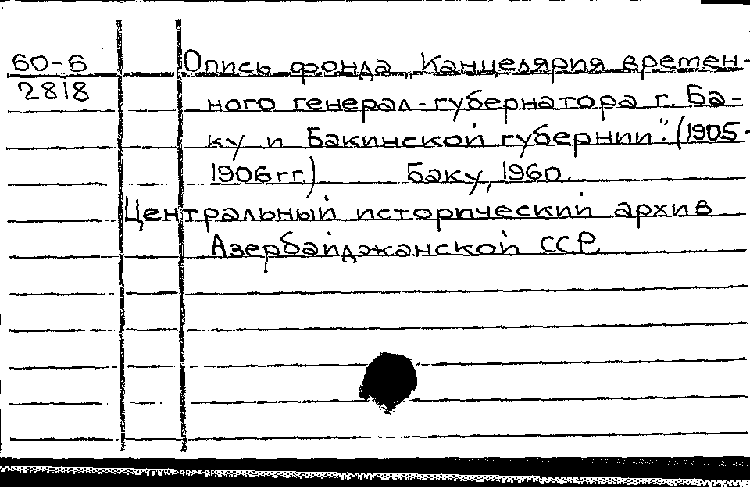 60-6
2818
Опись фонда „Канцелярия времен-
ного генерал-губернатора г. Ба-
ку и Бакинской губернии". (1905-
1906гг.) Баку, 1960.
Центральный исторический архив
Азербайджанской ССР.